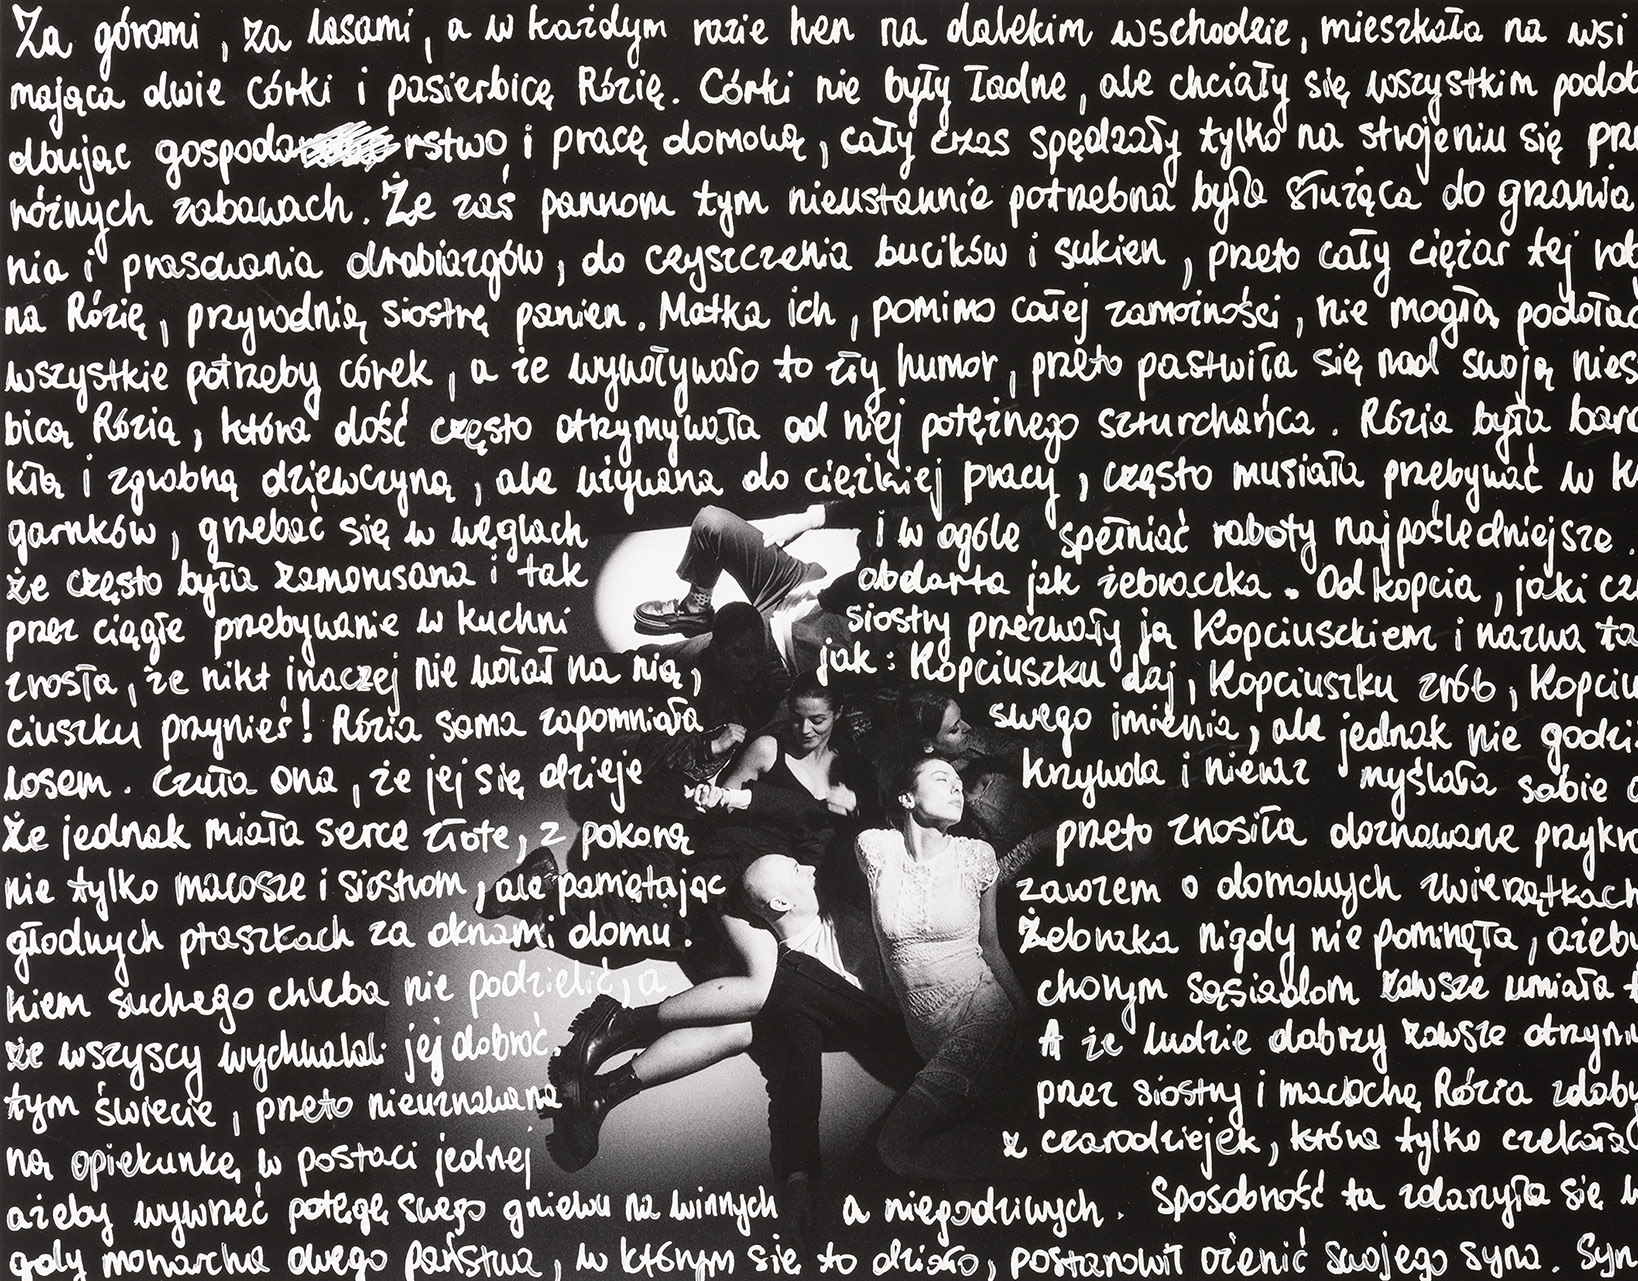 Za górami, za lasami, a w każdym razie hen na dalekim wschodzie, mieszkała na wsi
mająca dwie córki i pasierbicę Rózię. Córki nie były ładne, ale chciały się wszystkim podob
dbując gospoda rstwo i pracę domową, cały czas spędzały tylko na strojeniu się prz
różnych zabawach. Że zaś pannom tym nieustannie potrzebna była służąca do grzania
nia i prasowania drobiazgów, do czyszczenia bucików i sukien, przeto cały ciężar tej rob
na Rózię, przyrodnią siostrę panien. Matka ich, pomimo całej zamożności, nie mogła podołać
wszystkie potrzeby córek, a że wywoływało to zły humor, przeto pastwiła się nad swoją nies
bicą Rózią, która dość często otrzymywała od niej potężnego szturchańca. Rózia była bard
kłą i zgrabną dziewczyną, ale używana do ciężkiej pracy, często musiała przebywać w k
garnków, grzebać się w węglach i w ogóle spełniać roboty najpośledniejsze.
że często była zamorusana i tak obdarta jak żebraczka. Od kopcia, jaki cz
przez ciągłe przebywanie w kuchni siostry przezwały ją Kopciuszkiem i nazwa ta
zrosła, że nikt inaczej nie wołał na nią, jak: Kopciuszku daj, Kopciuszku zrób, Kopciu
ciuszku przynieś! Rózia sama zapomniała swego imienia, ale jednak nie godzi
losem. Czuła ona, że jej się dzieje krzywda i nieraz myślała sobie o
Że jednak miała serce złote, z pokorą przeto znosiła doznawane przykro
nie tylko macosze i siostrom, ale pamiętając zarazem o domowych zwierzątkach
głodnych ptaszkach za oknami domu. Żebraka nigdy nie pominęła, ażeby
kiem suchego chleba nie podzielić, a chorym sąsiadom zawsze umiała
że wszyscy wychwalali jej dobroć. A że ludzie dobrzy zawsze otrzymu
tym świecie, przeto nieuznawana przez siostry i macochę Rózia zdoby
ną opiekunkę w postaci jednej z czarodziejek, która tylko czekała
ażeby wywrzeć potęgę swego gniewu na winnych a niegodziwych. Sposobność ta zdarzyła się w
gdy monarcha owego państwa, w którym się to działo, postanowił ożenić swojego syna. Syn